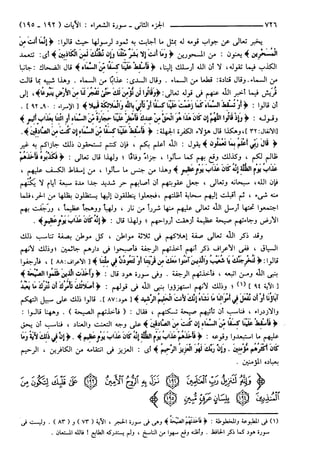 ٧٢٦ الجزء الثالث - سورة الشعراء : الآيات ( ١٩٢ ـ ١٩٥ )
يخبر تعالى عن جواب قومه له بمثل ما أجابت به ثمود لرسولها حيث قالوا: ﴿ إِنَّمَا أَنتَ مِنَ
الْمُسَحَّرِينَ ﴾ يعنون : من المسحورين ﴿ وَمَا أَنتَ إِلَّا بَشَرٌ مِّثْلُنَا وَإِن نَّظُنُّكَ لَمِنَ الْكَاذِبِينَ ﴾ أي: تتعمد
الكذب فيما تقوله، لا أن الله أرسلك إلينا. ﴿ فَأَسْقِطْ عَلَيْنَا كِسَفًا مِّنَ السَّمَاءِ ﴾ قال الضحاك: جانبا
من السماء. وقال قتادة: قطعا من السماء . وقال السدي: عذابا من السماء . وهذا شبيه بما قالت
قريش فيما أخبر الله عنهم في قوله تعالى: ﴿ وَقَالُوا لَن نُّؤْمِنَ لَكَ حَتَّىٰ تَفْجُرَ لَنَا مِنَ الْأَرْضِ يَنبُوعًا ﴾ ، إلى
أن قالوا : ﴿ أَوْ تُسْقِطَ السَّمَاءَ كَمَا زَعَمْتَ عَلَيْنَا كِسَفًا أَوْ تَأْتِيَ بِاللَّهِ وَالْمَلَائِكَةِ قَبِيلًا ﴾ [ الإسراء : ٩٠ ـ ٩٢ ] .
وقوله : ﴿ وَإِذْ قَالُوا اللَّهُمَّ إِن كَانَ هَٰذَا هُوَ الْحَقَّ مِنْ عِندِكَ فَأَمْطِرْ عَلَيْنَا حِجَارَةً مِّنَ السَّمَاءِ أَوِ ائْتِنَا بِعَذَابٍ أَلِيمٍ ﴾
[الأنفال: ٣٢]، وهكذا قال هؤلاء الكفرة الجهلة: ﴿ فَأَسْقِطْ عَلَيْنَا كِسَفًا مِّنَ السَّمَاءِ إِن كُنتَ مِنَ الصَّادِقِينَ ﴾.
﴿ قَالَ رَبِّي أَعْلَمُ بِمَا تَعْمَلُونَ ﴾ يقول : الله أعلم بكم ، فإن كنتم تستحقون ذلك جازاكم به غير
ظالم لكم ، وكذلك وقع بهم كما سألوا ، جزاءً وفاقًا ؛ ولهذا قال تعالى : ﴿ فَكَذَّبُوهُ فَأَخَذَهُمْ
عَذَابُ يَوْمِ الظُّلَّةِ إِنَّهُ كَانَ عَذَابَ يَوْمٍ عَظِيمٍ ﴾ وهذا من جنس ما سألوا ، من إسقاط الكسف عليهم ،
فإن الله، سبحانه وتعالى، جعل عقوبتهم أن أصابهم حر شديد جدا مدة سبعة أيام لا يكُنُّهم
منه شيء ، ثم أقبلت إليهم سحابة أظلتهم ، فجعلوا ينطلقون إليها يستظلون بظلها من الحر، فلما
اجتمعوا تحتها أرسل الله تعالى عليهم منها شررًا من نار ، ولهبا ووهجا عظيما ، ورجفت بهم
الأرض وجاءتهم صيحة عظيمة أزهقت أرواحهم ؛ ولهذا قال : ﴿ إِنَّهُ كَانَ عَذَابَ يَوْمٍ عَظِيمٍ ﴾ .
وقد ذكر الله تعالى صفة إهلاكهم في ثلاثة مواطن ، كل موطن بصفة تناسب ذلك
السياق ، ففي الأعراف ذكر أنهم أخذتهم الرجفة فأصبحوا في دارهم جاثمين ؛ وذلك لأنهم
قالوا: ﴿ لَنُخْرِجَنَّكَ يَا شُعَيْبُ وَالَّذِينَ آمَنُوا مَعَكَ مِن قَرْيَتِنَا أَوْ لَتَعُودُنَّ فِي مِلَّتِنَا ﴾ [ الأعراف: ٨٨ ] ، فأرجفوا
بنبي الله ومن اتبعه ، فأخذتهم الرجفة . وفي سورة هود قال : ﴿ وَأَخَذَتِ الَّذِينَ ظَلَمُوا الصَّيْحَةُ ﴾
[ الآية ٩٤ ] (١) ؛ وذلك لأنهم استهزؤوا بنبي الله في قولهم : ﴿ أَصَلَاتُكَ تَأْمُرُكَ أَن نَّتْرُكَ مَا يَعْبُدُ
آبَاؤُنَا أَوْ أَن نَّفْعَلَ فِي أَمْوَالِنَا مَا نَشَاءُ إِنَّكَ لَأَنتَ الْحَلِيمُ الرَّشِيدُ ﴾ [ هود: ٨٧]. قالوا ذلك على سبيل التهكم
والازدراء ، فناسب أن تأتيهم صيحة تسكتهم ، فقال : ﴿ فَأَخَذَتْهُمُ الصَّيْحَةُ ﴾ . وهاهنا قالوا :
﴿ فَأَسْقِطْ عَلَيْنَا كِسَفًا مِّنَ السَّمَاءِ إِن كُنتَ مِنَ الصَّادِقِينَ ﴾ على وجه التعنت والعناد ، فناسب أن يحق
عليهم ما استبعدوا وقوعه : ﴿ فَأَخَذَهُمْ عَذَابُ يَوْمِ الظُّلَّةِ إِنَّهُ كَانَ عَذَابَ يَوْمٍ عَظِيمٍ ﴾ . ﴿ إِنَّ فِي ذَٰلِكَ لَآيَةً وَمَا
كَانَ أَكْثَرُهُم مُّؤْمِنِينَ . وَإِنَّ رَبَّكَ لَهُوَ الْعَزِيزُ الرَّحِيمُ ﴾ أي : العزيز في انتقامه من الكافرين ، الرحيم
بعباده المؤمنين .
﴿ وَإِنَّهُ لَتَنزِيلُ رَبِّ الْعَالَمِينَ ﴿١٩٢﴾ نَزَلَ بِهِ الرُّوحُ الْأَمِينُ ﴿١٩٣﴾ عَلَىٰ قَلْبِكَ لِتَكُونَ مِنَ
الْمُنذِرِينَ ﴿١٩٤﴾ بِلِسَانٍ عَرَبِيٍّ مُّبِينٍ ﴿١٩٥﴾ ﴾
(١) في المطبوعة والمخطوطة : ﴿ فَأَخَذَتْهُمُ الصَّيْحَةُ ﴾ وهي في سورة الحجر ، الآية ( ٧٣ ) و ( ٨٣ ) . وليست في
سورة هود كما ذكر الحافظ . وأظنه وقع سهوا من الناسخ ، ولم يستدركه الطابع ! فالله المستعان .